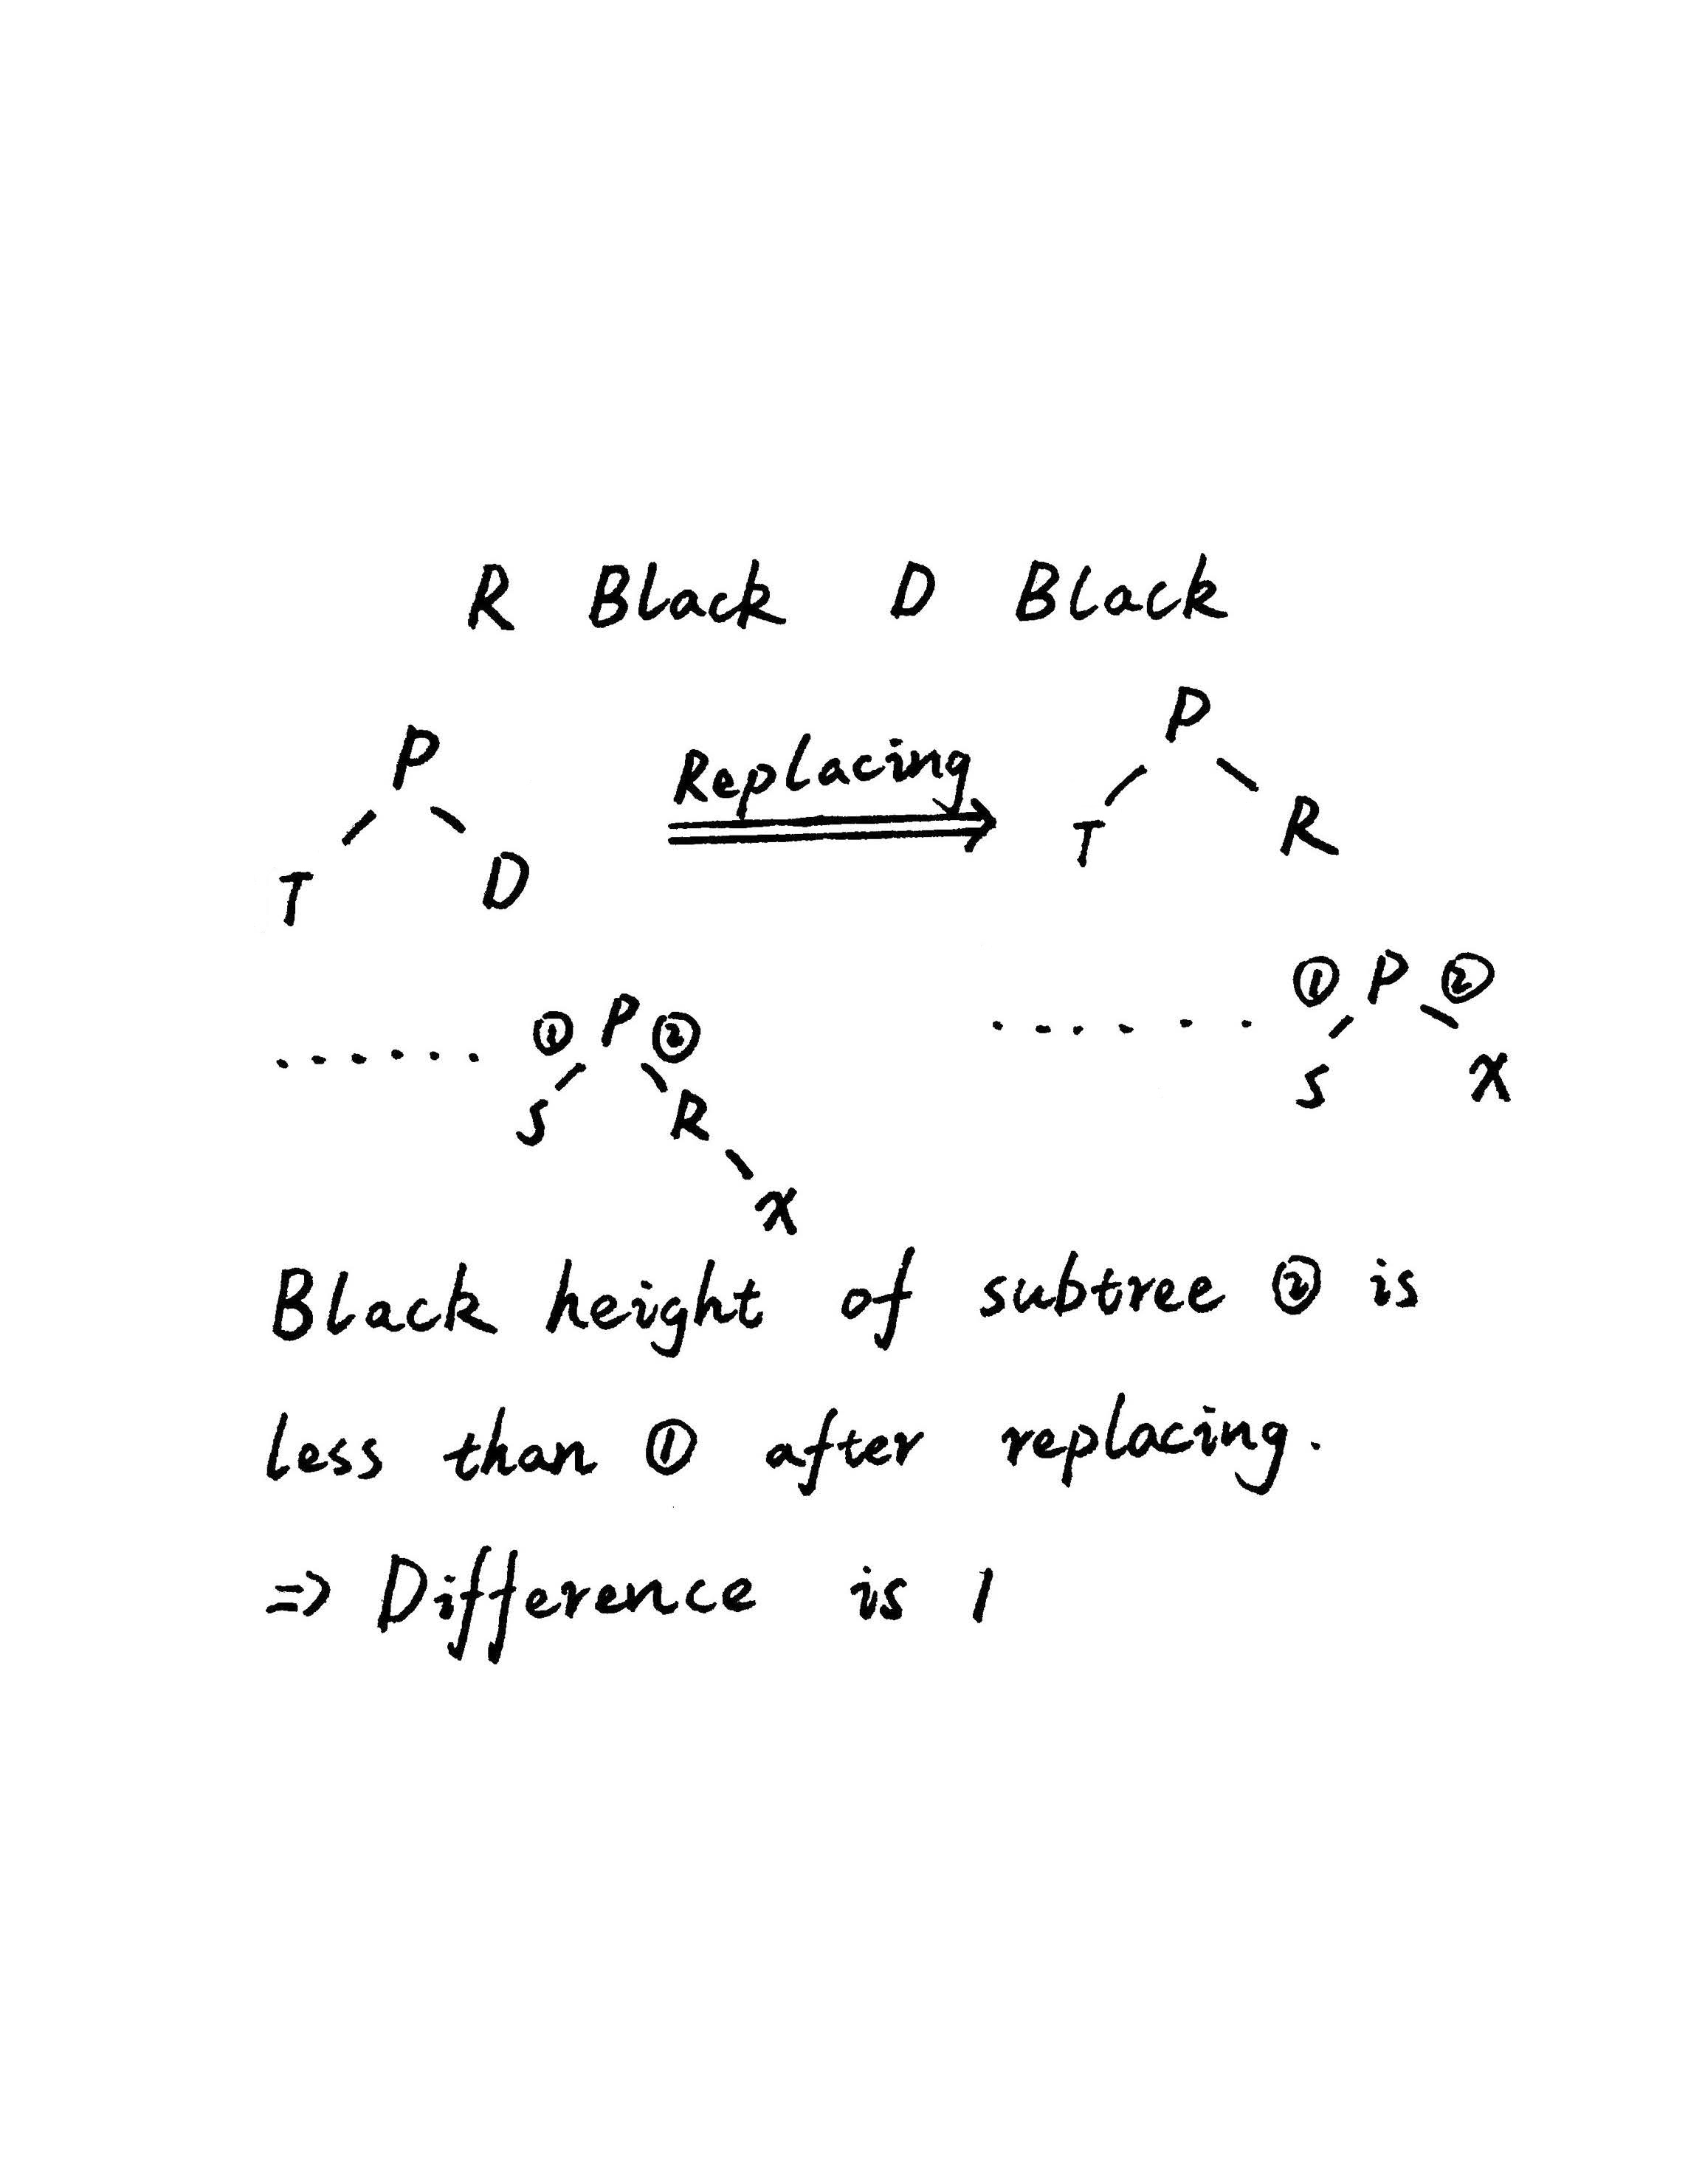 R Black D Black
P Replacing P
T D T R
...... ① P ② ...... ① P ②
S R S X
X
Black height of subtree ② is
less than ① after replacing.
=> Difference is 1